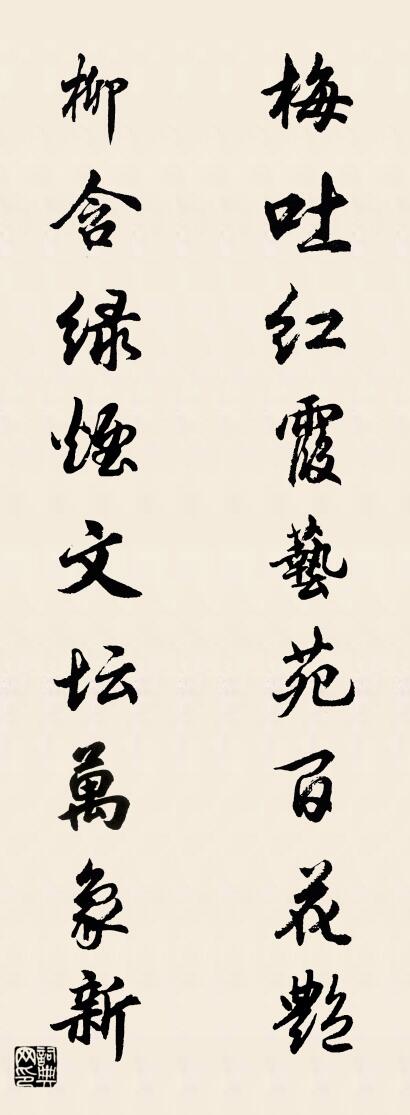 梅吐红霞藝苑百花艷
柳含绿煙文坛萬象新
詞典网印